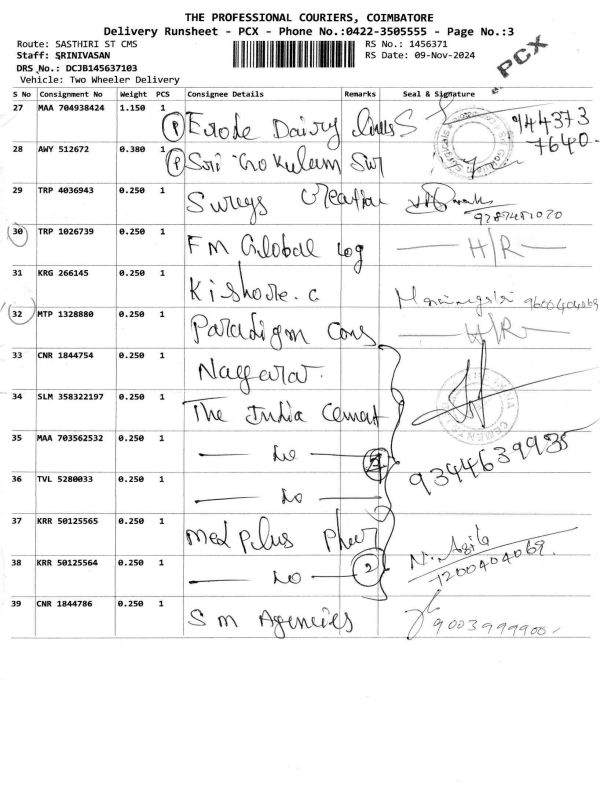 THE PROFESSIONAL COURIERS, COIMBATORE
Delivery Runsheet - PCX - Phone No.:0422-3505555 - Page No.:3
Route: SASTHIRI ST CMS
RS No.: 1456371
PCX
Staff: SRINIVASAN
RS Date: 09-Nov-2024
DRS No.: DCJB145637103
Vehicle: Two Wheeler Delivery
S No Consignment No Weight PCS Consignee Details Remarks Seal & Signature
27 MAA 704938424 1.150 1 P Erode Dairy lines S 944373 7640
28 AWY 512672 0.380 1 P Sri Gokulam Sur
29 TRP 4036943 0.250 1 Sureys Creation
30 TRP 1026739 0.250 1 FM Global log H/R
31 KRG 266145 0.250 1 Kishore. C 9600404069
32 MTP 1328880 0.250 1 Paradigm Cons H/R
33 CNR 1844754 0.250 1 Nagarar.
34 SLM 358322197 0.250 1 The India Cement
35 MAA 703562532 0.250 1 Do 4 9344639935
36 TVL 5280033 0.250 1 Do
37 KRR 50125565 0.250 1 Med Plus Phar
38 KRR 50125564 0.250 1 Do 2 N. Agila 7200404069.
39 CNR 1844786 0.250 1 S M Agencies 9003999900